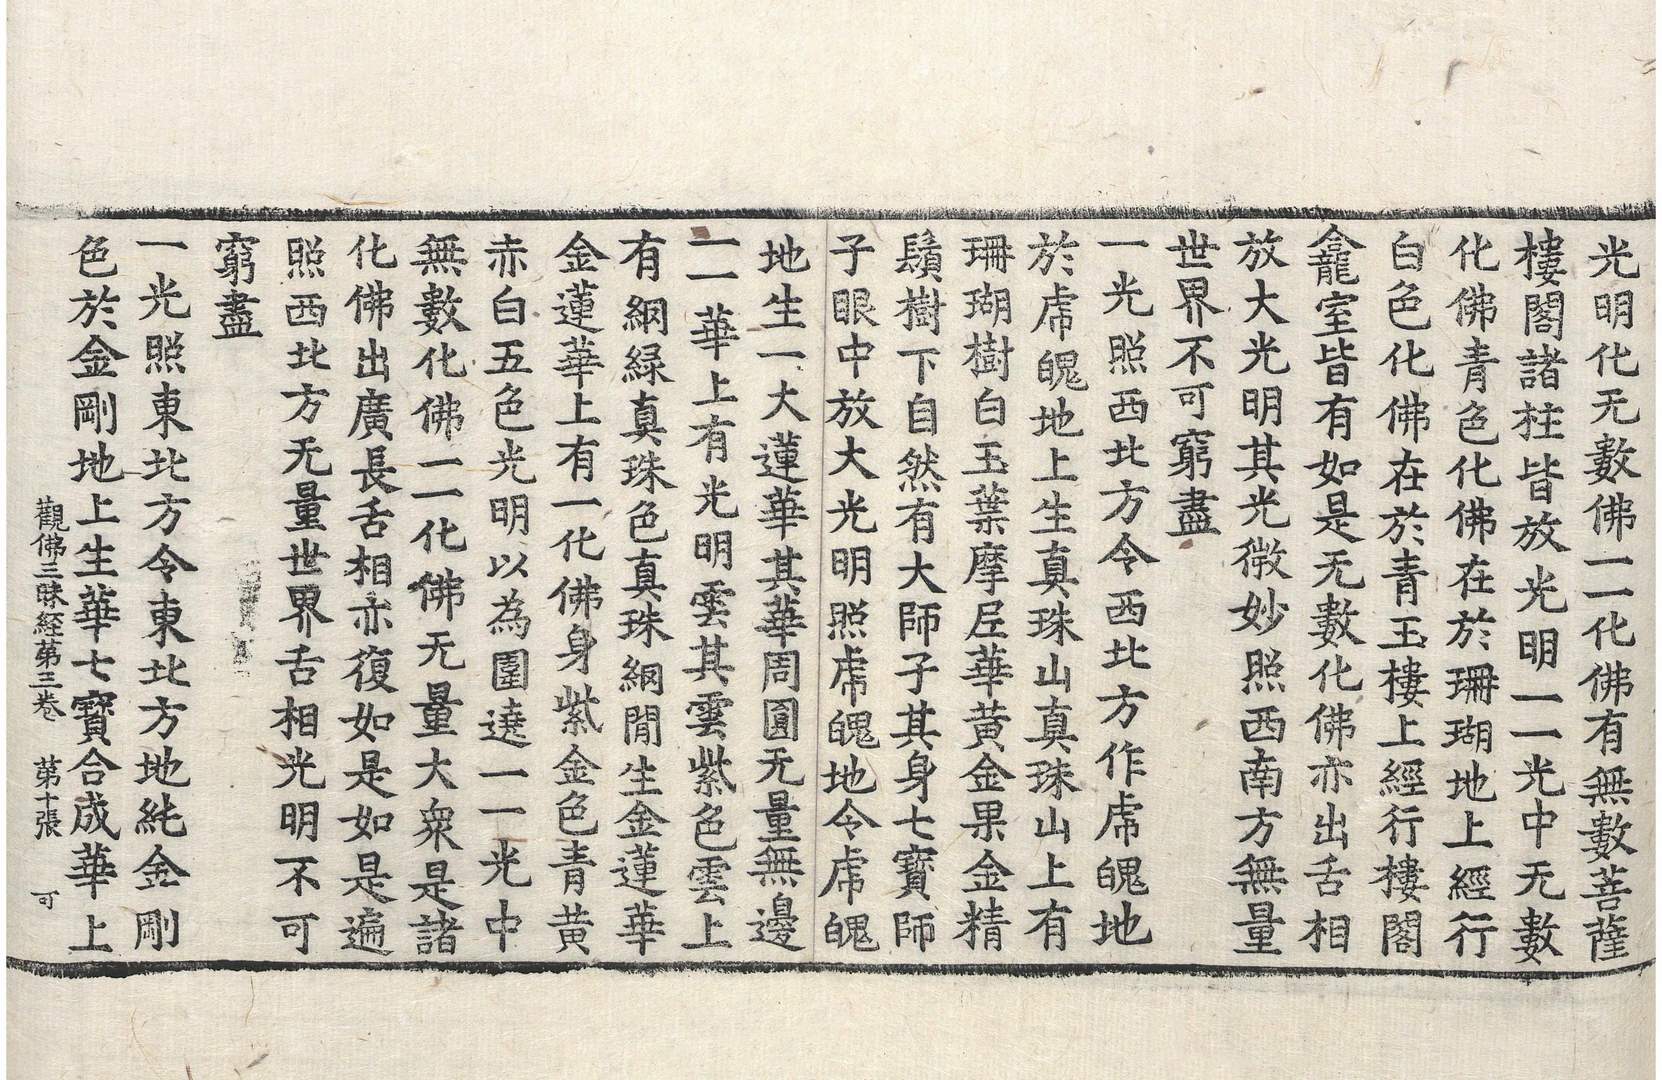 光明化无數佛一一化佛有無數菩薩
樓閣諸柱皆放光明一一光中无數
化佛青色化佛在於珊瑚地上經行
白色化佛在於青玉樓上經行樓閣
龕室皆有如是无數化佛亦出舌相
放大光明其光微妙照西南方無量
世界不可窮盡
一光照西北方令西北方作虎魄地
於虎魄地上生真珠山真珠山上有
珊瑚樹白玉葉摩尼華黃金果金精
鬚樹下自然有大師子其身七寶師
子眼中放大光明照虎魄地令虎魄
地生一大蓮華其華周圓无量無邊
一一華上有光明雲其雲紫色雲上
有網緑真珠色真珠網閒生金蓮華
金蓮華上有一化佛身紫金色青黃
赤白五色光明以為圍遶一一光中
無數化佛一一化佛无量大衆是諸
化佛出廣長舌相亦復如是如是遍
照西北方无量世界舌相光明不可
窮盡
一光照東北方令東北方地純金剛
色於金剛地上生華七寶合成華上
觀佛三昧経苐三卷 苐十張 可